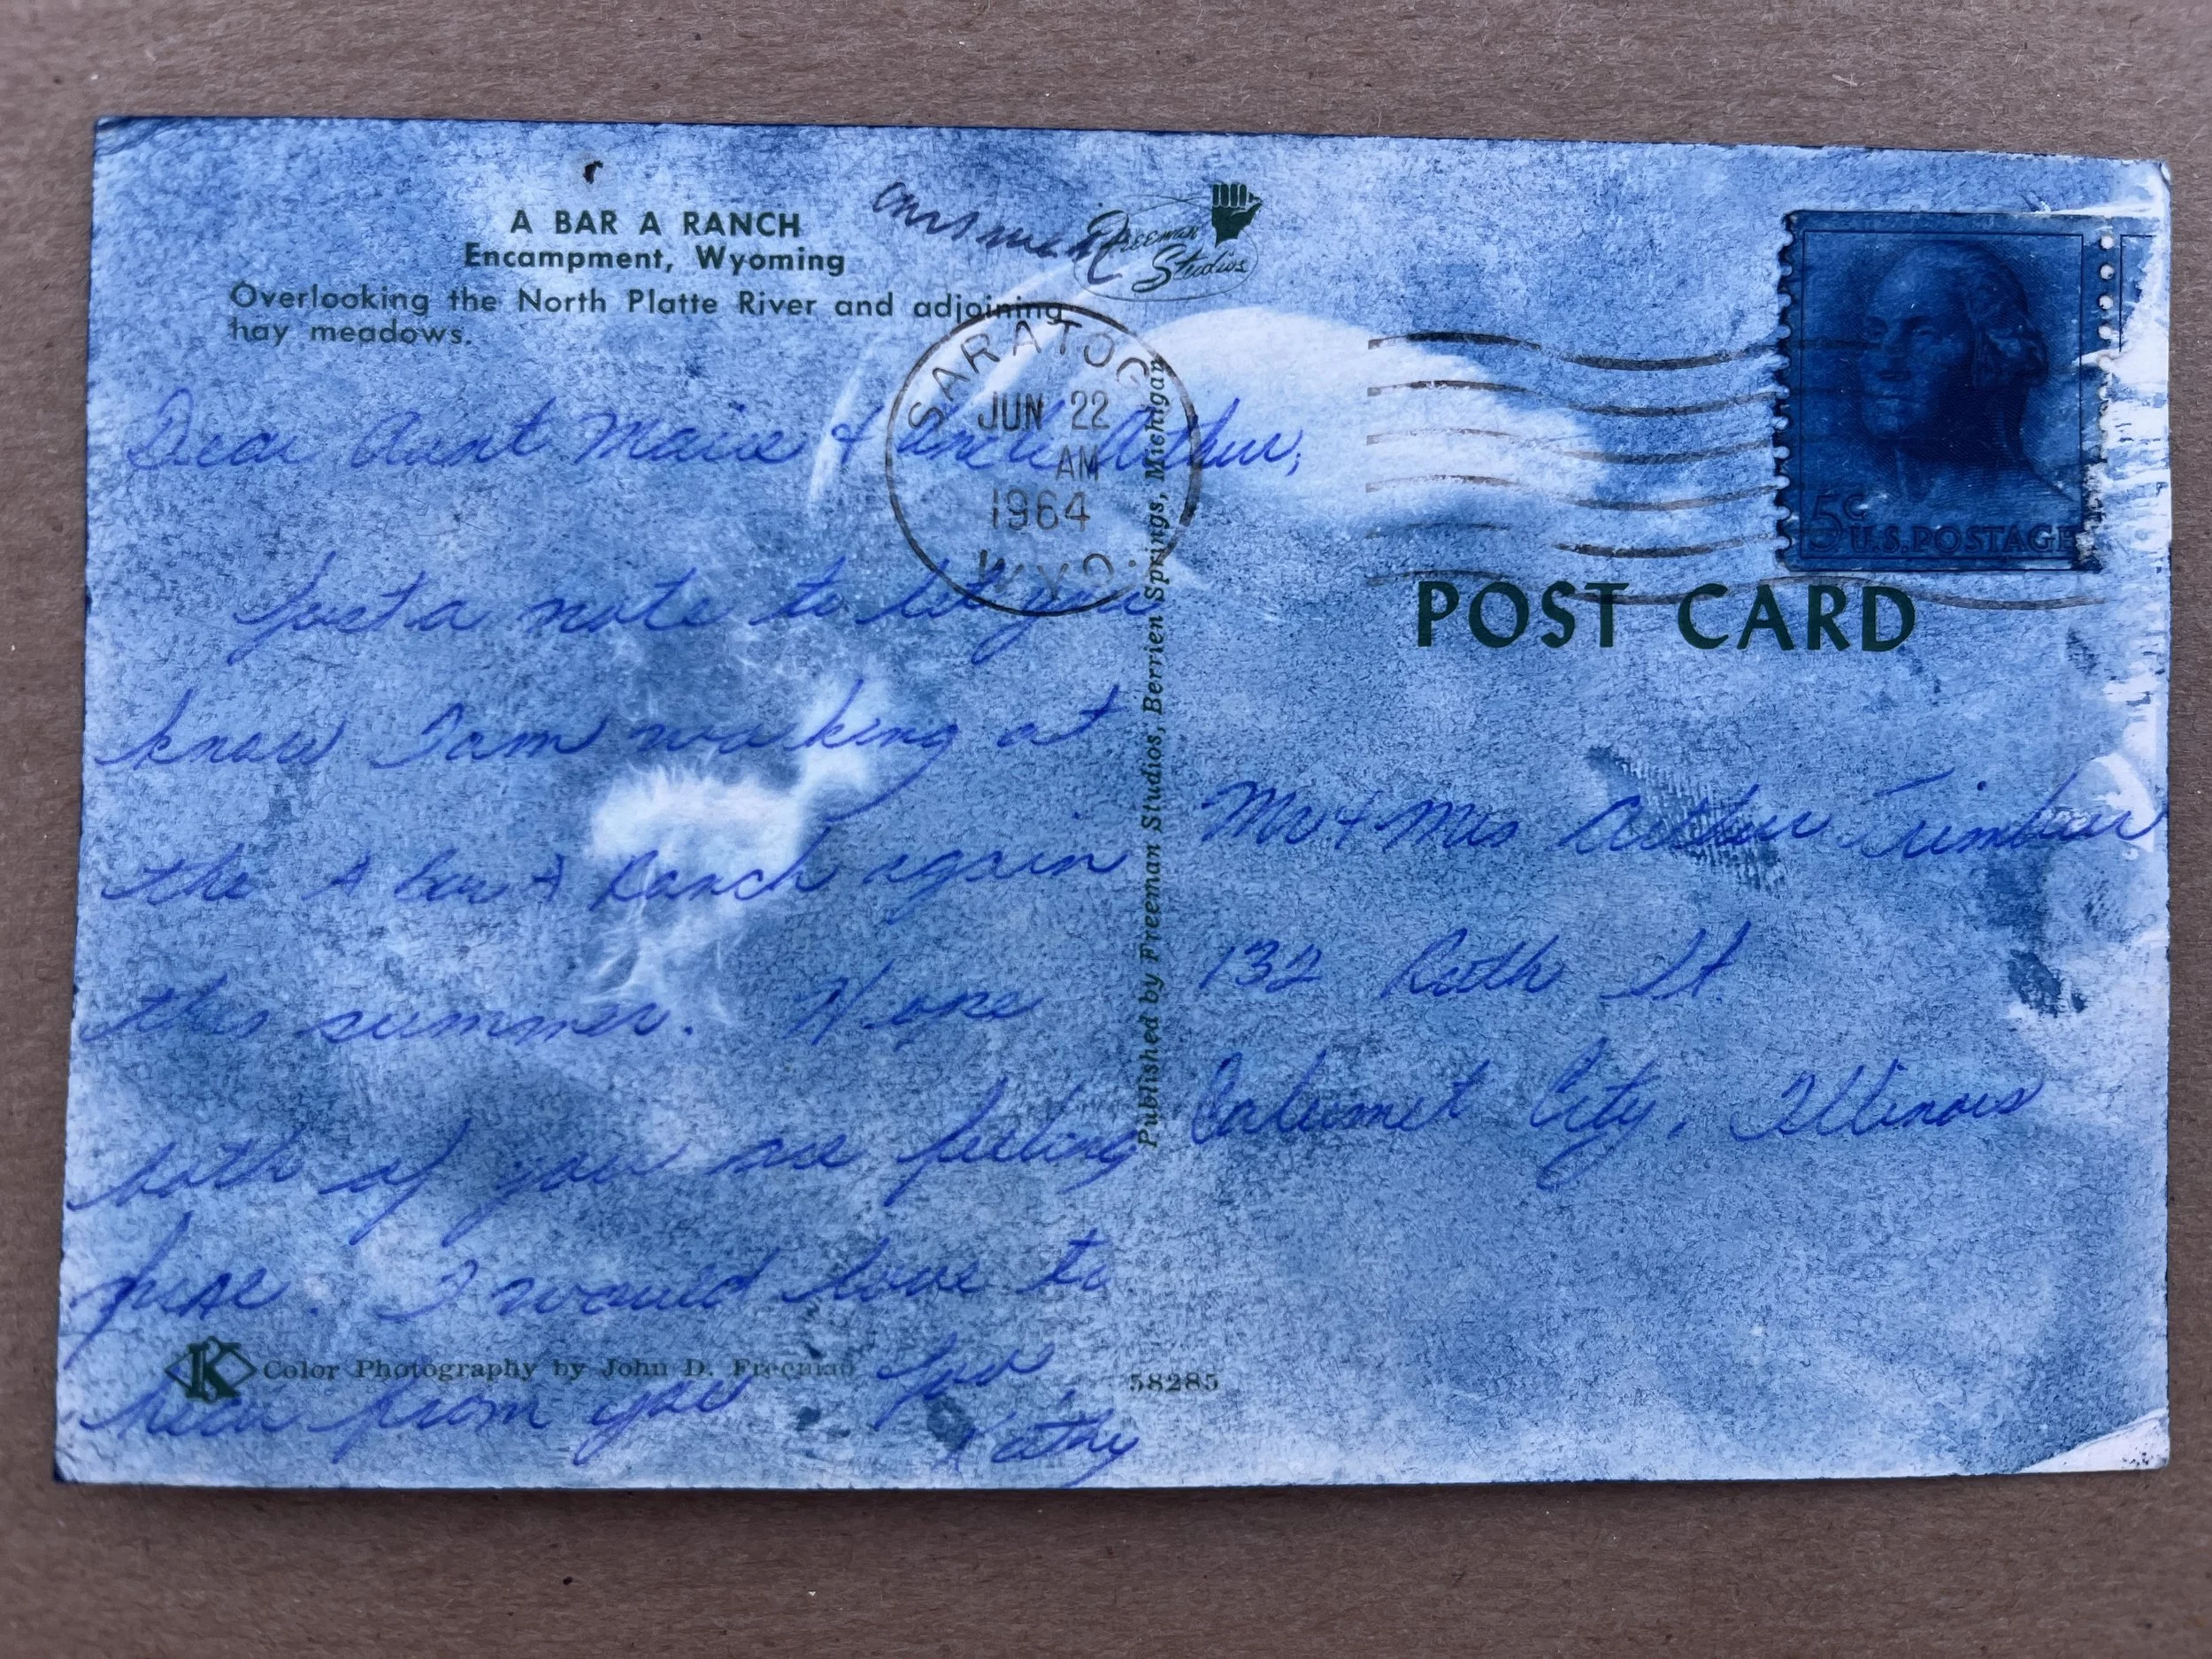 A BAR A RANCH
Encampment, Wyoming
Overlooking the North Platte River and adjoining
hay meadows.
Freeman
Studios
SARATOGA
JUN 22
AM
1964
WYO.
5c
U.S. POSTAGE
POST CARD
Dear Aunt Marie & Uncle Arthur,
Just a note to let you
know I am working at
the A bar A Ranch again
this summer. Hope
both of you are feeling
fine. I would love to
hear from you Love,
Kathy
Published by Freeman Studios, Berrien Springs, Michigan
Mr & Mrs Arthur
132 Ruth St
Calumet City, Illinois
K Color Photography by John D. Freeman
58285